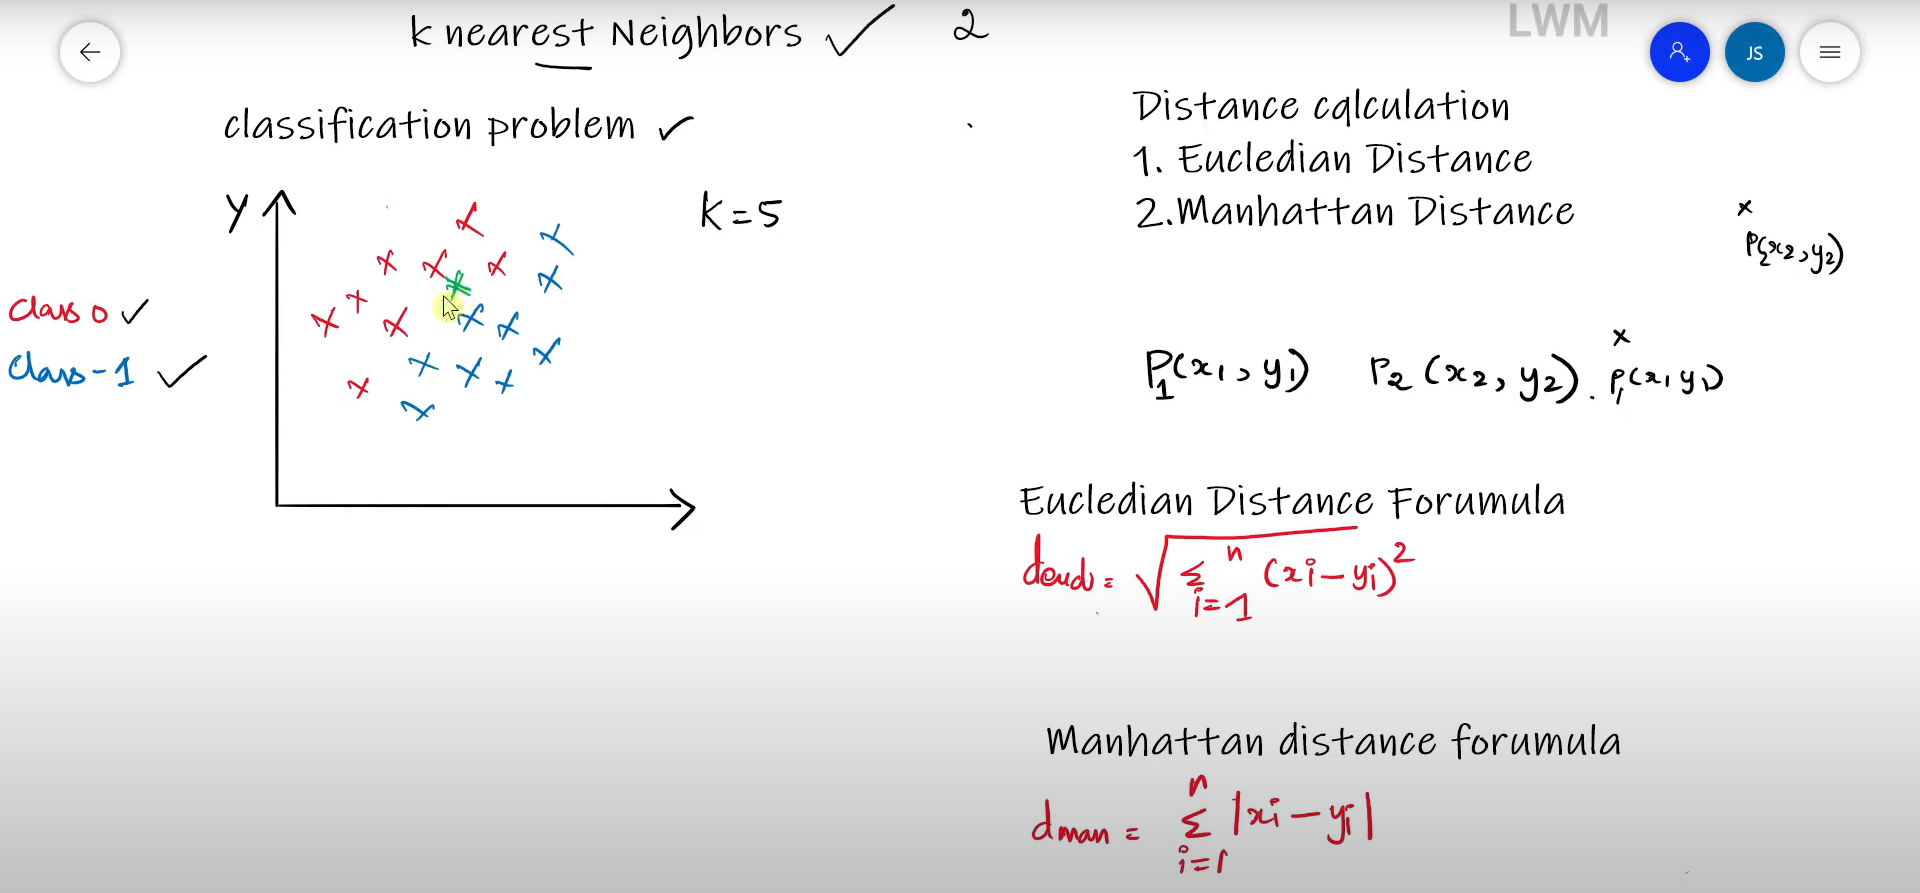 k nearest Neighbors ✓ 2
LWM
JS
classification problem ✓
Y
k = 5
Class 0 ✓
Class - 1 ✓
Distance calculation
1. Eucledian Distance
2.Manhattan Distance
x
P2(x2, y2)
x
P1(x1, y1) P2(x2, y2). P1(x1 y1)
Eucledian Distance Forumula
deud = √ Σ i=1 n (xi − yi)²
Manhattan distance forumula
dman = Σ i=1 n |xi − yi|